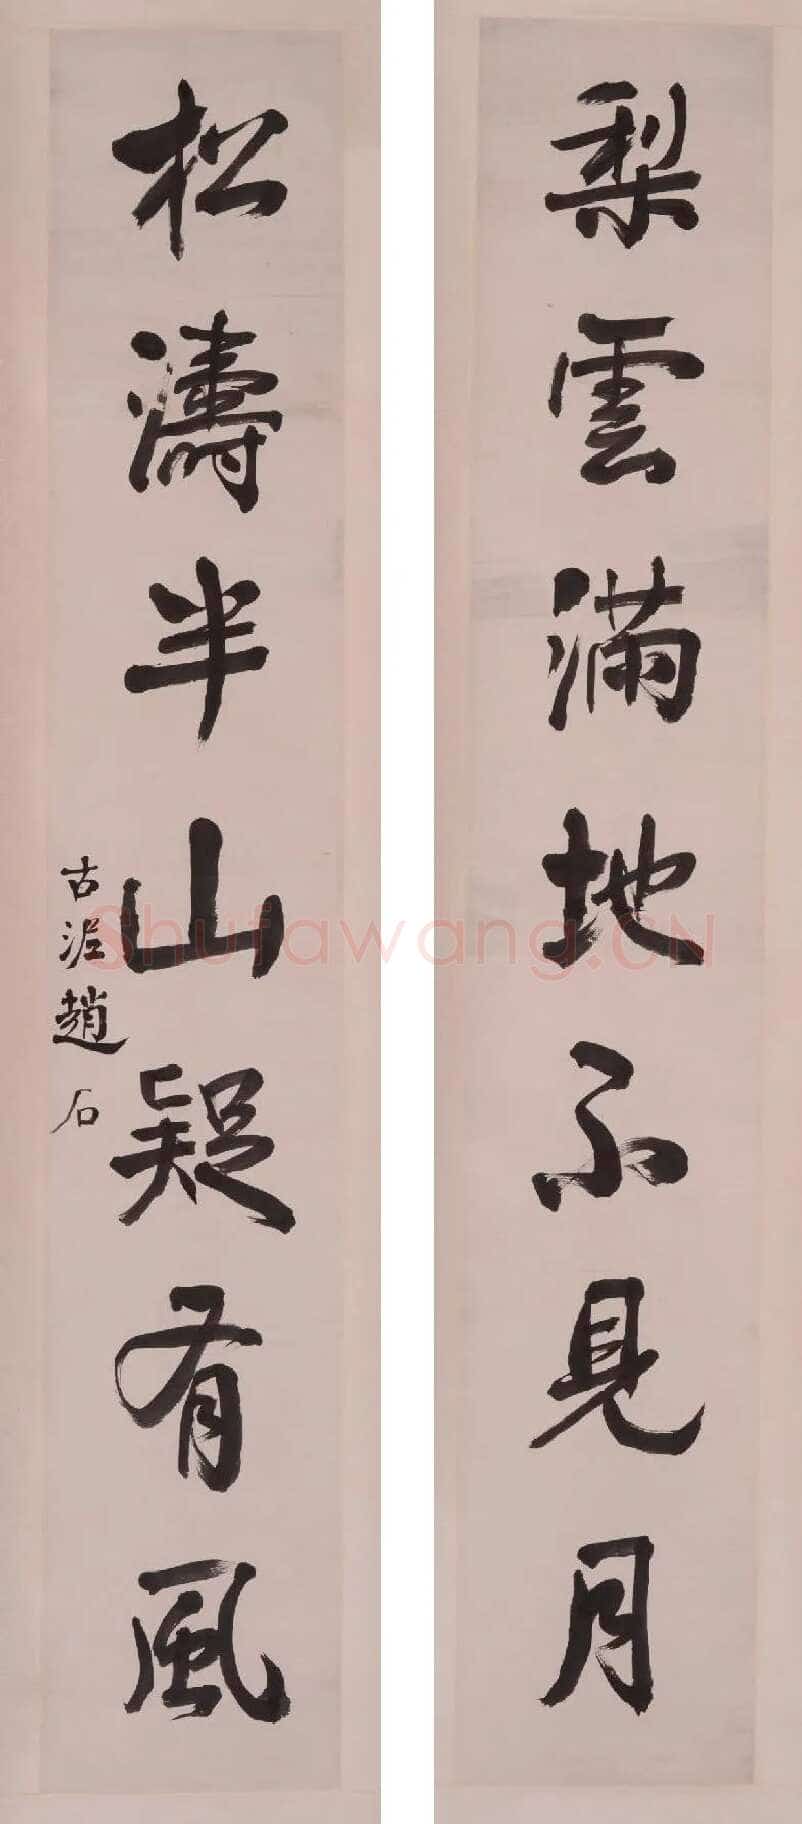 梨雲滿地不見月
松濤半山疑有風
古泥趙石
Shufawang.CN